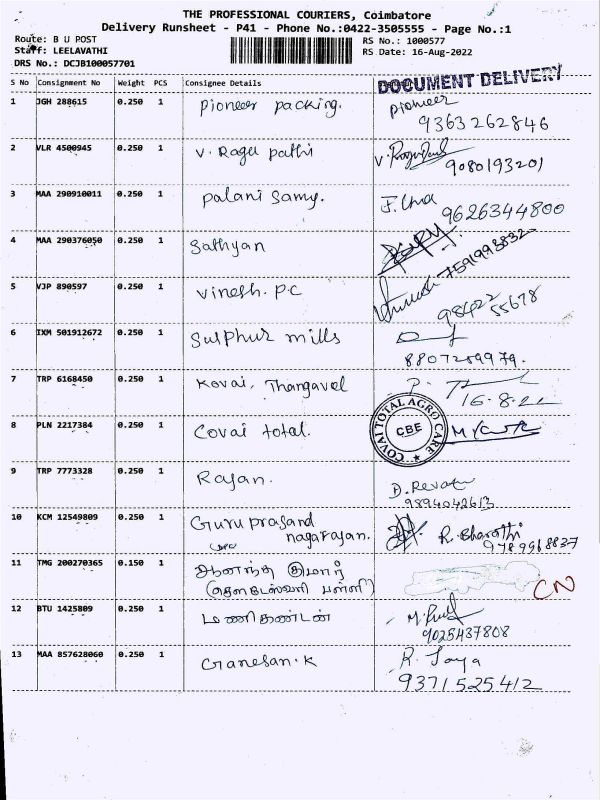 THE PROFESSIONAL COURIERS, Coimbatore
Delivery Runsheet - P41 - Phone No.:0422-3505555 - Page No.:1
Route: B U POST
RS No.: 1000577
Staff: LEELAVATHI
RS Date: 16-Aug-2022
DRS No.: DCJB100057701
S No Consignment No Weight PCS Consignee Details DOCUMENT DELIVERY
1 JGH 288615 0.250 1 Pioneer packing. Pioneer
9363262846
2 VLR 4500945 0.250 1 V. Ragu pathi V.
9080193201
3 MAA 290910011 0.250 1 Palani Samy.
9626344800
4 MAA 290376050 0.250 1 Sathyan
7591993832
5 VJP 890597 0.250 1 Vinesh. P.C
98422 55678
6 IXM 501912672 0.250 1 Sulphur mills
8807259979.
7 TRP 6168450 0.250 1 Kovai, Thangavel P.
16.8.22
8 PLN 2217384 0.250 1 Covai total. COVAI TOTAL AGRO CARE CBE
9 TRP 7773328 0.250 1 Rajan. D. Revati
9894042613
10 KCM 12549809 0.250 1 Guru prasand R. Bharathi
nagarajan. 9789968837
11 TMG 200270365 0.150 1 ஆனந்த குமார்
CN
12 BTU 1425809 0.250 1 மணிகண்டன் M.
9025437808
13 MAA 857628060 0.250 1 Ganesan. K R. Jaya
9371525412